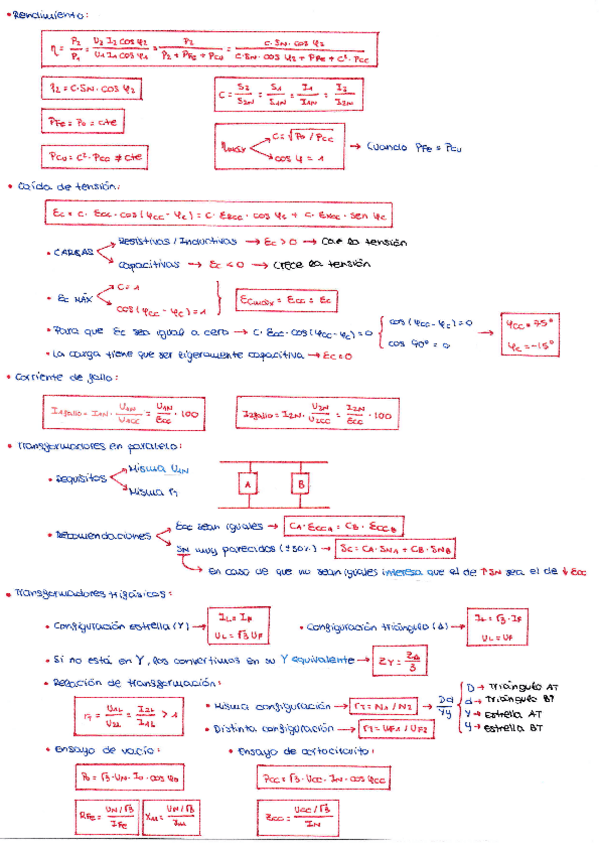 • Rendimiento:
η = P2/P1 = U2 I2 cos φ2 / U1 I1 cos φ1 = P2 / P2 + PFe + PCu = C·SN·cos φ2 / C·SN·cos φ2 + PFe + C²·PCC
P2 = C·SN·cos φ2
C = S2/S2N = S1/S1N = I1/I1N = I2/I2N
PFe = P0 = cte
ηmáx → C = √P0/PCC → cos φ = 1 → Cuando PFe = PCu
PCu = C²·PCC ≠ cte
• Caída de tensión:
εc = C·εCC·cos(φCC - φc) = C·εRCC·cos φc + C·εXCC·sen φc
• CARGAS
Resistivas / Inductivas → εc > 0 → Cae la tensión
Capacitivas → εc < 0 → Crece la tensión
• εc MÁX
C = 1
cos(φCC - φc) = 1
εcmáx = εCC = εc
• Para que εc sea igual a cero → C·εCC·cos(φCC - φc) = 0
cos(φCC - φc) = 0
cos 90° = 0
φCC = 75°
φc = -15°
• La carga tiene que ser ligeramente capacitiva → εc = 0
• Corriente de fallo:
I1fallo = I1N · U1N/U1CC = I1N/εCC · 100
I2fallo = I2N · U2N/U2CC = I2N/εCC · 100
• Transformadores en paralelo:
• Requisitos
Misma U1N
Misma rT
A B
• Recomendaciones
εCC sean iguales → CA·εCCA = CB·εCCB
SN muy parecidos (±50%) → SC = CA·SNA + CB·SNB
→ En caso de que no sean iguales interesa que el de ↑SN sea el de ↓εCC
• Transformadores trifásicos:
• Configuración estrella (Y) → IL = IF
UL = √3 UF
• Configuración triángulo (Δ) → IL = √3·IF
UL = UF
• Si no está en Y, los convertimos en su Y equivalente → ZY = ZΔ/3
• Relación de transformación:
rT = U1L/U2L = I2L/I1L > 1
• Misma configuración → rT = N1/N2 → Dd Yy
• Distinta configuración → rT = UF1/UF2
D → Triángulo AT
d → Triángulo BT
Y → Estrella AT
y → Estrella BT
• Ensayo de vacío:
• Ensayo de cortocircuito:
P0 = √3·UN·I0·cos φ0
PCC = √3·UCC·IN·cos φCC
RFe = UN/√3 / IFe
Xμ = UN/√3 / Iμ
ZCC = UCC/√3 / IN